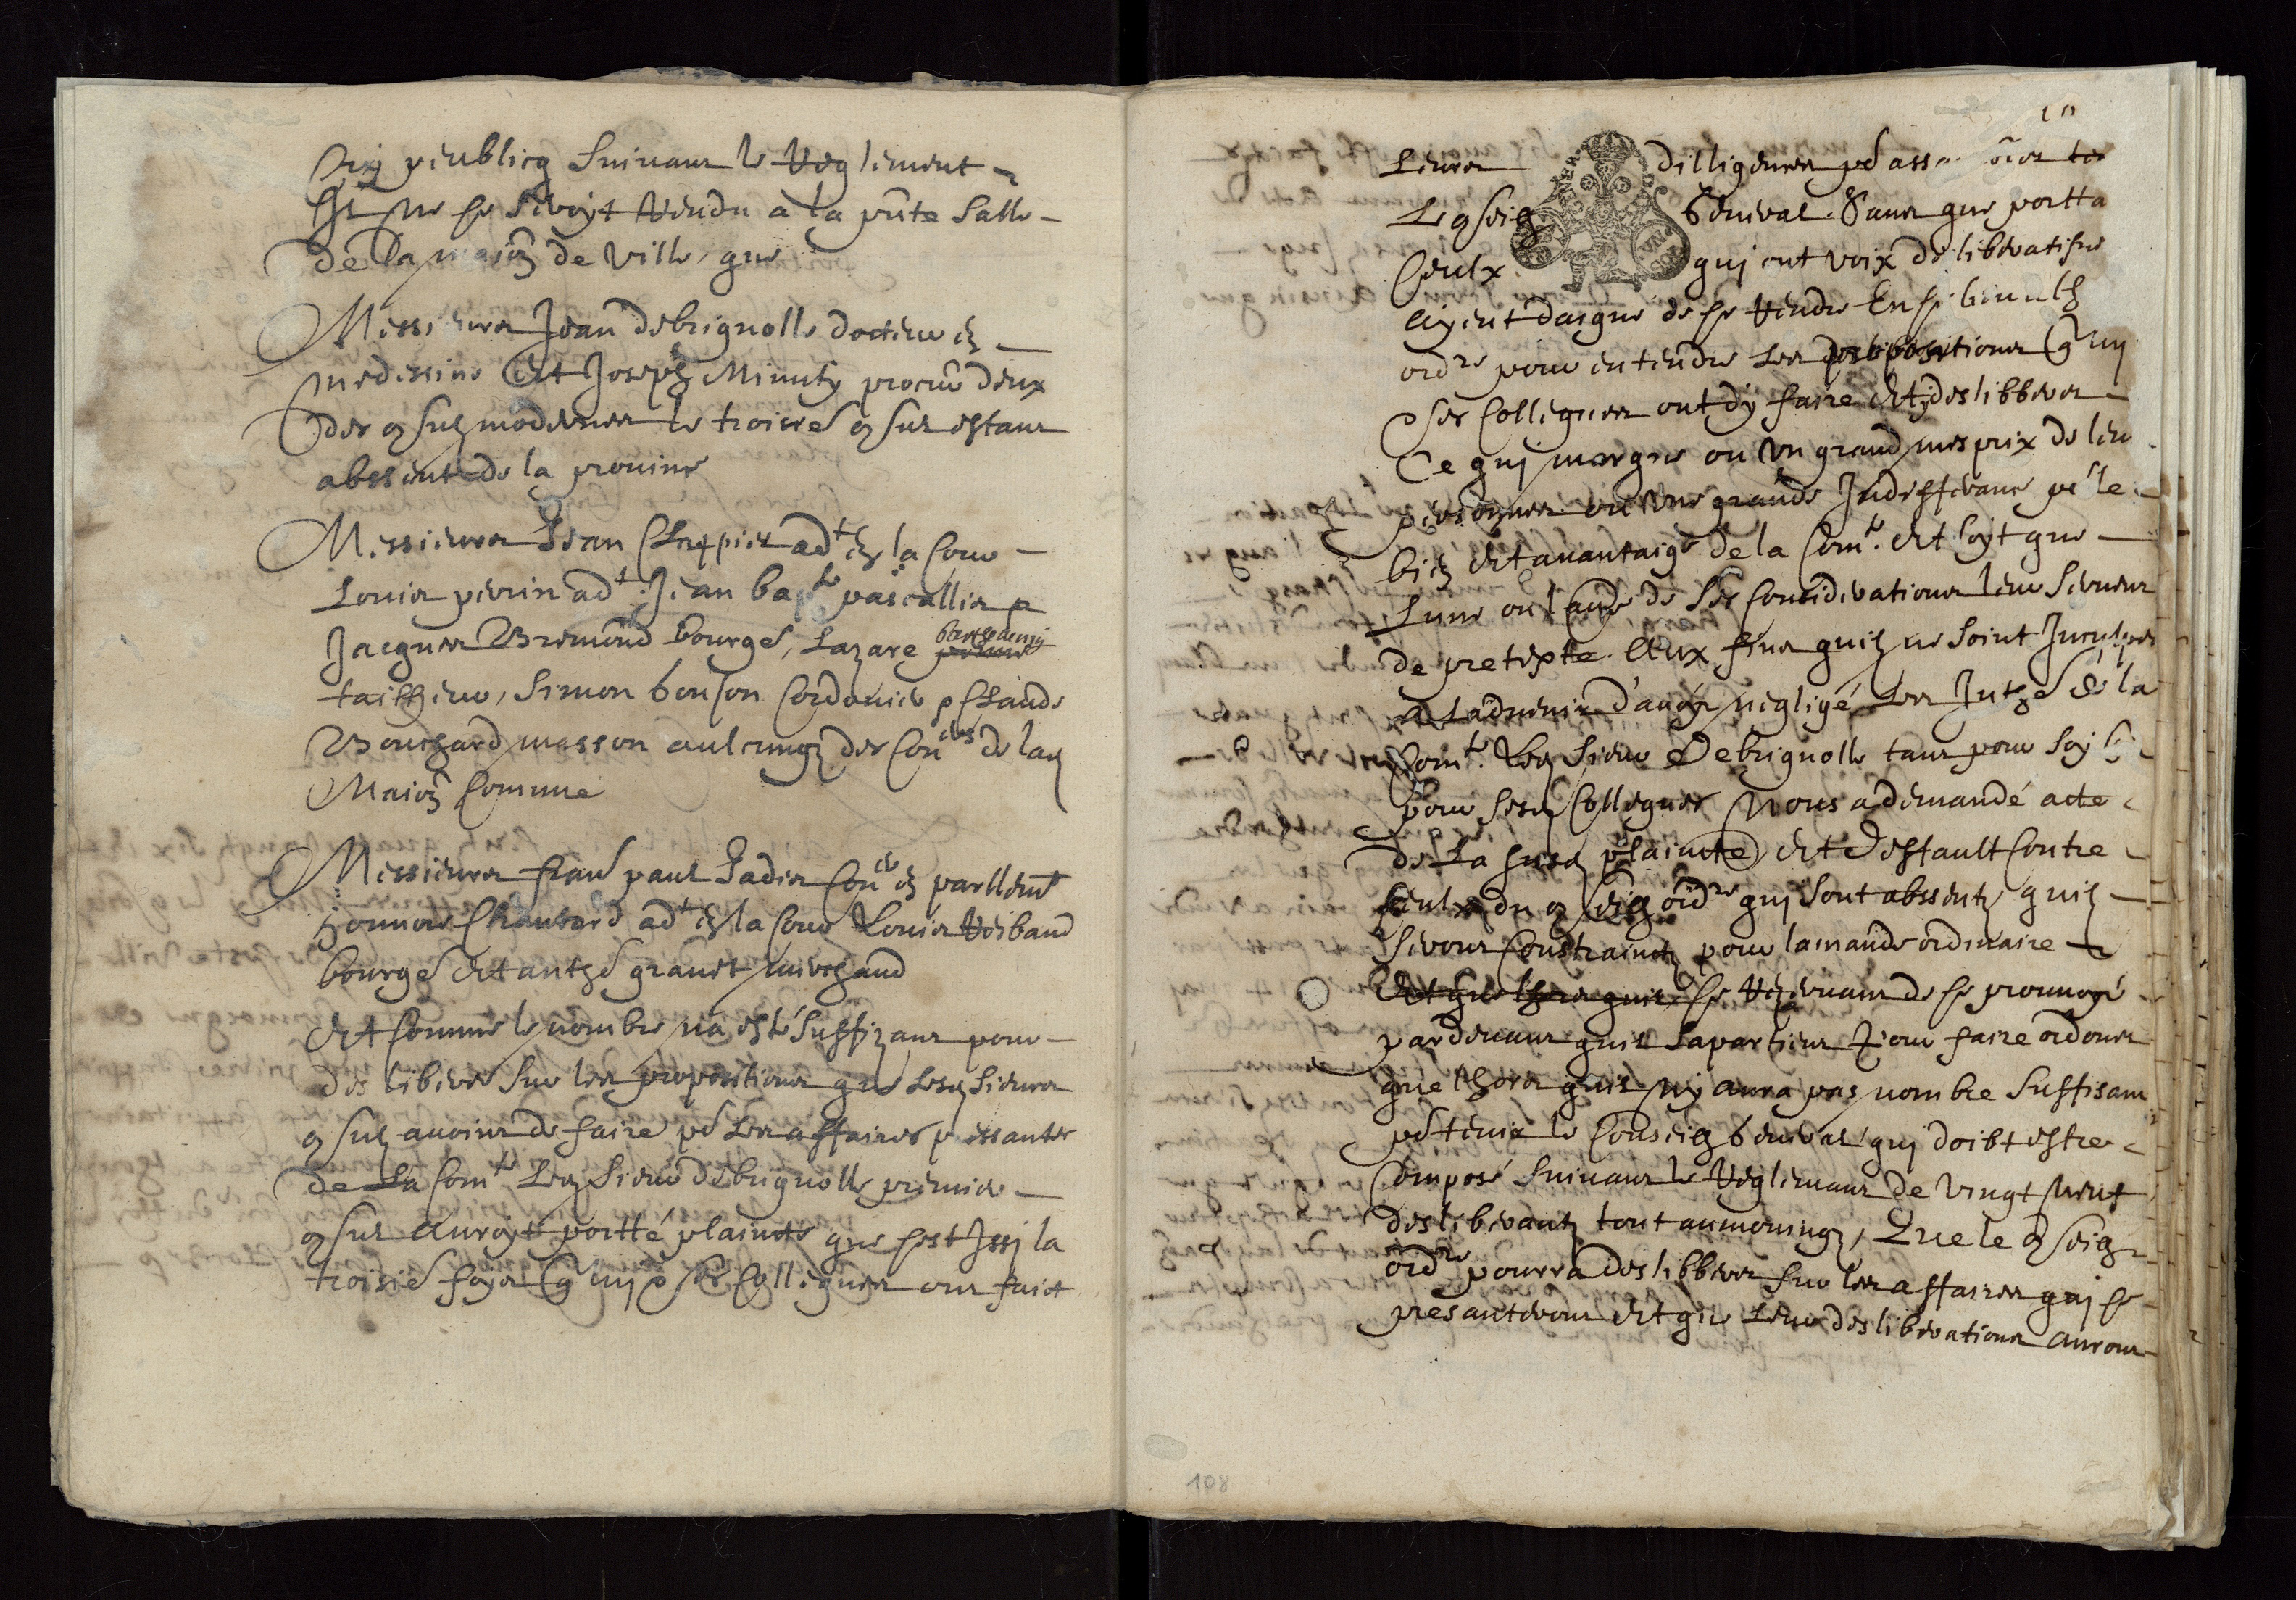 Cry peublicq suivant le reglement
Il ne se seroyt rendu a la pnte salle
de la maiõn de ville que
Messieurs Jean debrignolle docteur en
medessine et Joseph Minuty procur deux
des consulz modernes le troisie consul estant
abssent de la provinse
Messieurs Jean adt en la Cour
Louis perrin adt Jean bapte pascallis
Jacques Bremond bourge, Lazare barthelemy
tailheur, Simon bonson Cordonier Claude
Bouchard masson aulcungz des Coners de lad
Maiõn Commune
Messieurs frans paul Jadis Coner en parllemt
honnore Chautard adt en la Cour Louis Reibaud
bourge et anthe granet merchand
Et comme le nombre na esté suffizant pour
deslibérer sur les propositions que lesd sieurs
consulz avoint de faire po les affaires pressantes
de la Comte Led sieur debrignolle premier
consul auroyt portté plaincte que sest Issi la
troisie foys quil et ses collegues ont faict
10
Leurs dilligences po ass
Le conseig General. Sans que portta
Ceulx qui ont voix deliberatifve
ayent daigne de se rendre
ordre pour entendre les propositions quil
et ses Collegues ont dy faire et y deslibberer
Ce qui marque ou un grand mesprix de leur
personnes ou une grande Indifferance po le
bien et avantaige de la Comte. et soyt que
Lune ou lautre de ses Considerations leur serveut
de pretexte. Aux fins quilz ne soint Inculpes
a Ladvenir davoyr negligé les Inthe de la
Comte. Led sieur Debrignolle tant pour soy
pour sesd Collegues Nous a demandé acte
de La susd plaincte, et deffault Contre
Ceulx du conseig ordre qui sont abssentz quilz
seront Constrainctz pour lamande ordinaire
Et que lhors quilz se rezervant de se prouvoyr
pardevant quil Sapartient pour faire ordoner
que lhors quil ny aura pas nombre suffisant
po tenir le Conseig General qui doibt estre
Composé suivant le reglemant de vingt neuf
deslibérantz tout aumoingz, Que le conseig
ordre pourra deslibberer sur les affaires qui se
presanteront et que leurs desliberations auront
108